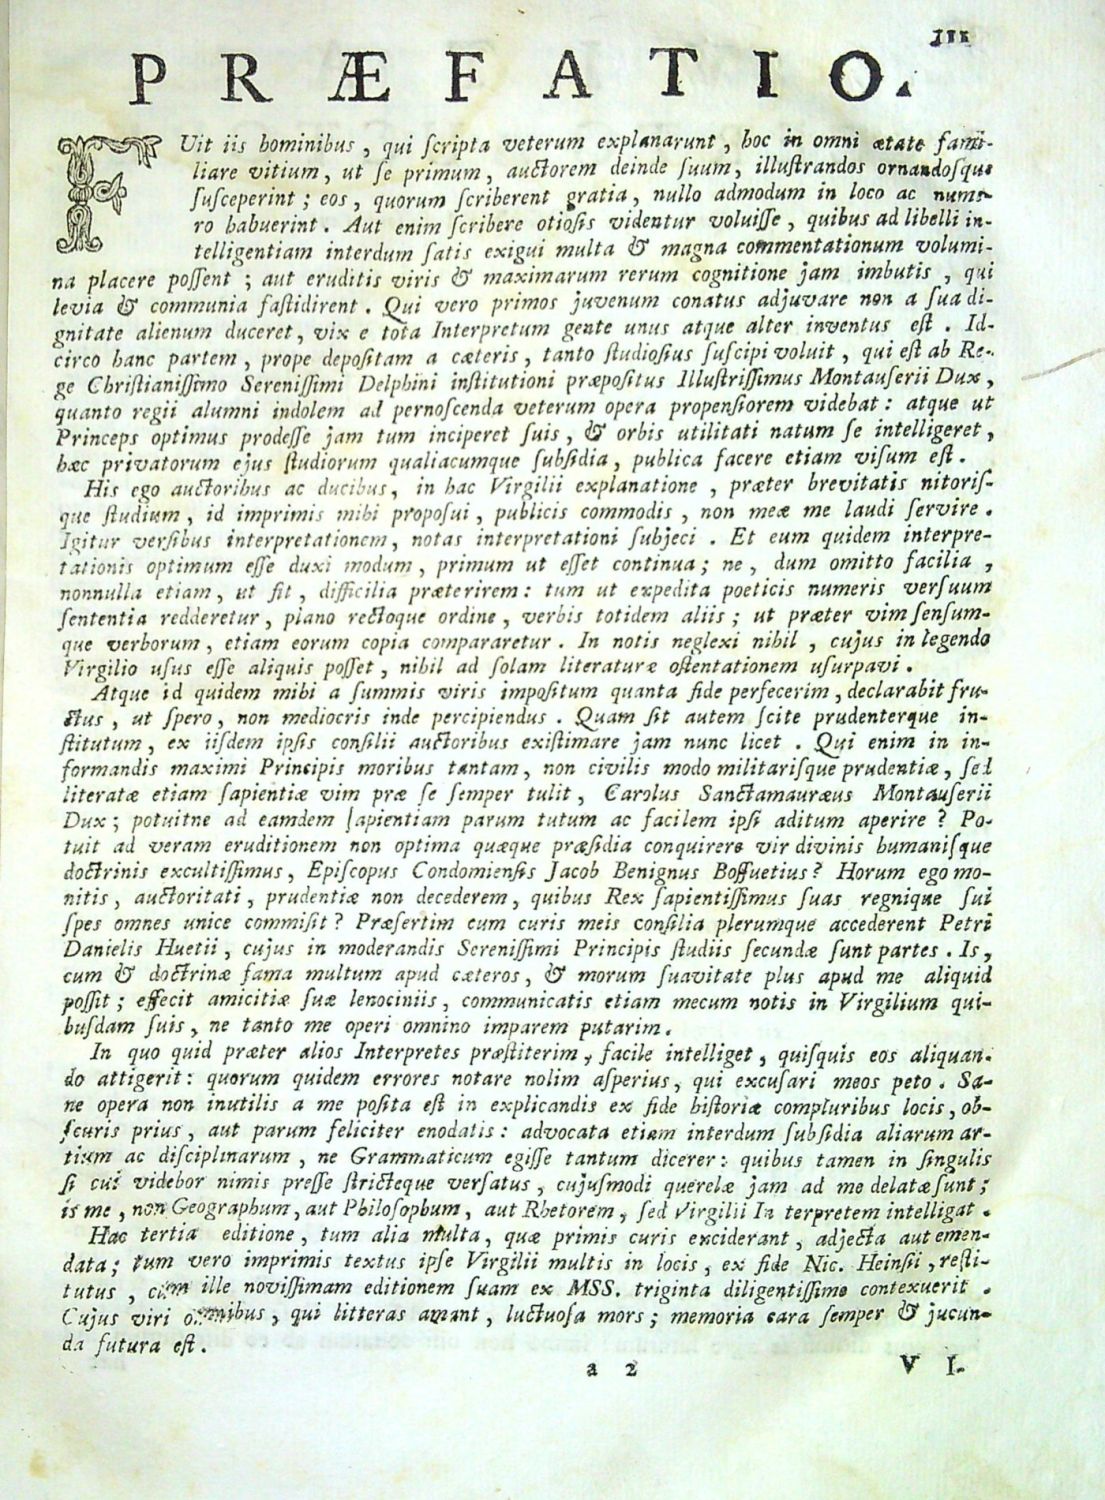 III
PRÆFATIO.
FUit iis hominibus, qui ſcripta veterum explanarunt, hoc in omni ætate fami-
liare vitium, ut ſe primum, auctorem deinde ſuum, illuſtrandos ornandoſque
ſuſceperint; eos, quorum ſcriberent gratia, nullo admodum in loco ac nume-
ro habuerint. Aut enim ſcribere otioſis videntur voluiſſe, quibus ad libelli in-
telligentiam interdum ſatis exigui multa & magna commentationum volumi-
na placere poſſent; aut eruditis viris & maximarum rerum cognitione jam imbutis, qui
levia & communia faſtidirent. Qui vero primos juvenum conatus adjuvare non a ſua di-
gnitate alienum duceret, vix e tota Interpretum gente unus atque alter inventus eſt. Id-
circo hanc partem, prope depoſitam a cæteris, tanto ſtudioſius ſuſcipi voluit, qui eſt ab Re-
ge Chriſtianiſſimo Sereniſſimi Delphini inſtitutioni præpoſitus Illuſtriſſimus Montauſerii Dux,
quanto regii alumni indolem ad pernoſcenda veterum opera propenſiorem videbat: atque ut
Princeps optimus prodeſſe jam tum inciperet ſuis, & orbis utilitati natum ſe intelligeret,
hæc privatorum ejus ſtudiorum qualiacumque ſubſidia, publica facere etiam viſum eſt.
His ego auctoribus ac ducibus, in hac Virgilii explanatione, præter brevitatis nitoriſ-
que ſtudium, id imprimis mihi propoſui, publicis commodis, non meæ me laudi ſervire.
Igitur verſibus interpretationem, notas interpretationi ſubjeci. Et eum quidem interpre-
tationis optimum eſſe duxi modum, primum ut eſſet continua; ne, dum omitto facilia,
nonnulla etiam, ut fit, difficilia præterirem: tum ut expedita poeticis numeris verſuum
ſententia redderetur, plano rectoque ordine, verbis totidem aliis; ut præter vim ſenſum-
que verborum, etiam eorum copia compararetur. In notis neglexi nihil, cujus in legendo
Virgilio uſus eſſe aliquis poſſet, nihil ad ſolam literaturæ oſtentationem uſurpavi.
Atque id quidem mihi a ſummis viris impoſitum quanta fide perfecerim, declarabit fru-
ctus, ut ſpero, non mediocris inde percipiendus. Quam ſit autem ſcite prudenterque in-
ſtitutum, ex iiſdem ipſis conſilii auctoribus exiſtimare jam nunc licet. Qui enim in in-
formandis maximi Principis moribus tantam, non civilis modo militariſque prudentiæ, ſed
literatæ etiam ſapientiæ vim præ ſe ſemper tulit, Carolus Sanctamauræus Montauſerii
Dux; potuitne ad eamdem ſapientiam parum tutum ac facilem ipſi aditum aperire? Po-
tuit ad veram eruditionem non optima quæque præſidia conquirere vir divinis humaniſque
doctrinis excultiſſimus, Epiſcopus Condomienſis Jacob Benignus Boſſuetius? Horum ego mo-
nitis, auctoritati, prudentiæ non decederem, quibus Rex ſapientiſſimus ſuas regnique ſui
ſpes omnes unice commiſit? Præſertim cum curis meis conſilia plerumque accederent Petri
Danielis Huetii, cujus in moderandis Sereniſſimi Principis ſtudiis ſecundæ ſunt partes. Is,
cum & doctrinæ fama multum apud cæteros, & morum ſuavitate plus apud me aliquid
poſſit; effecit amicitiæ ſuæ lenociniis, communicatis etiam mecum notis in Virgilium qui-
buſdam ſuis, ne tanto me operi omnino imparem putarim.
In quo quid præter alios Interpretes præſtiterim, facile intelliget, quiſquis eos aliquan-
do attigerit: quorum quidem errores notare nolim aſperius, qui excuſari meos peto. Sa-
ne opera non inutilis a me poſita eſt in explicandis ex fide hiſtoriæ compluribus locis, ob-
ſcuris prius, aut parum feliciter enodatis: advocata etiam interdum ſubſidia aliarum ar-
tium ac diſciplinarum, ne Grammaticum egiſſe tantum dicerer: quibus tamen in ſingulis
ſi cui videbor nimis preſſe ſtricteque verſatus, cujuſmodi querelæ jam ad me delatæ ſunt;
is me, non Geographum, aut Philoſophum, aut Rhetorem, ſed Virgilii In terpretem intelligat.
Hac tertia editione, tum alia multa, quæ primis curis exciderant, adjecta aut emen-
data; tum vero imprimis textus ipſe Virgilii multis in locis, ex fide Nic. Heinſii, reſti-
tutus, cum ille noviſſimam editionem ſuam ex MSS. triginta diligentiſſime contexuerit.
Cujus viri omnibus, qui litteras amant, luctuoſa mors; memoria cara ſemper & jucun-
da futura eſt.
a 2 VI-